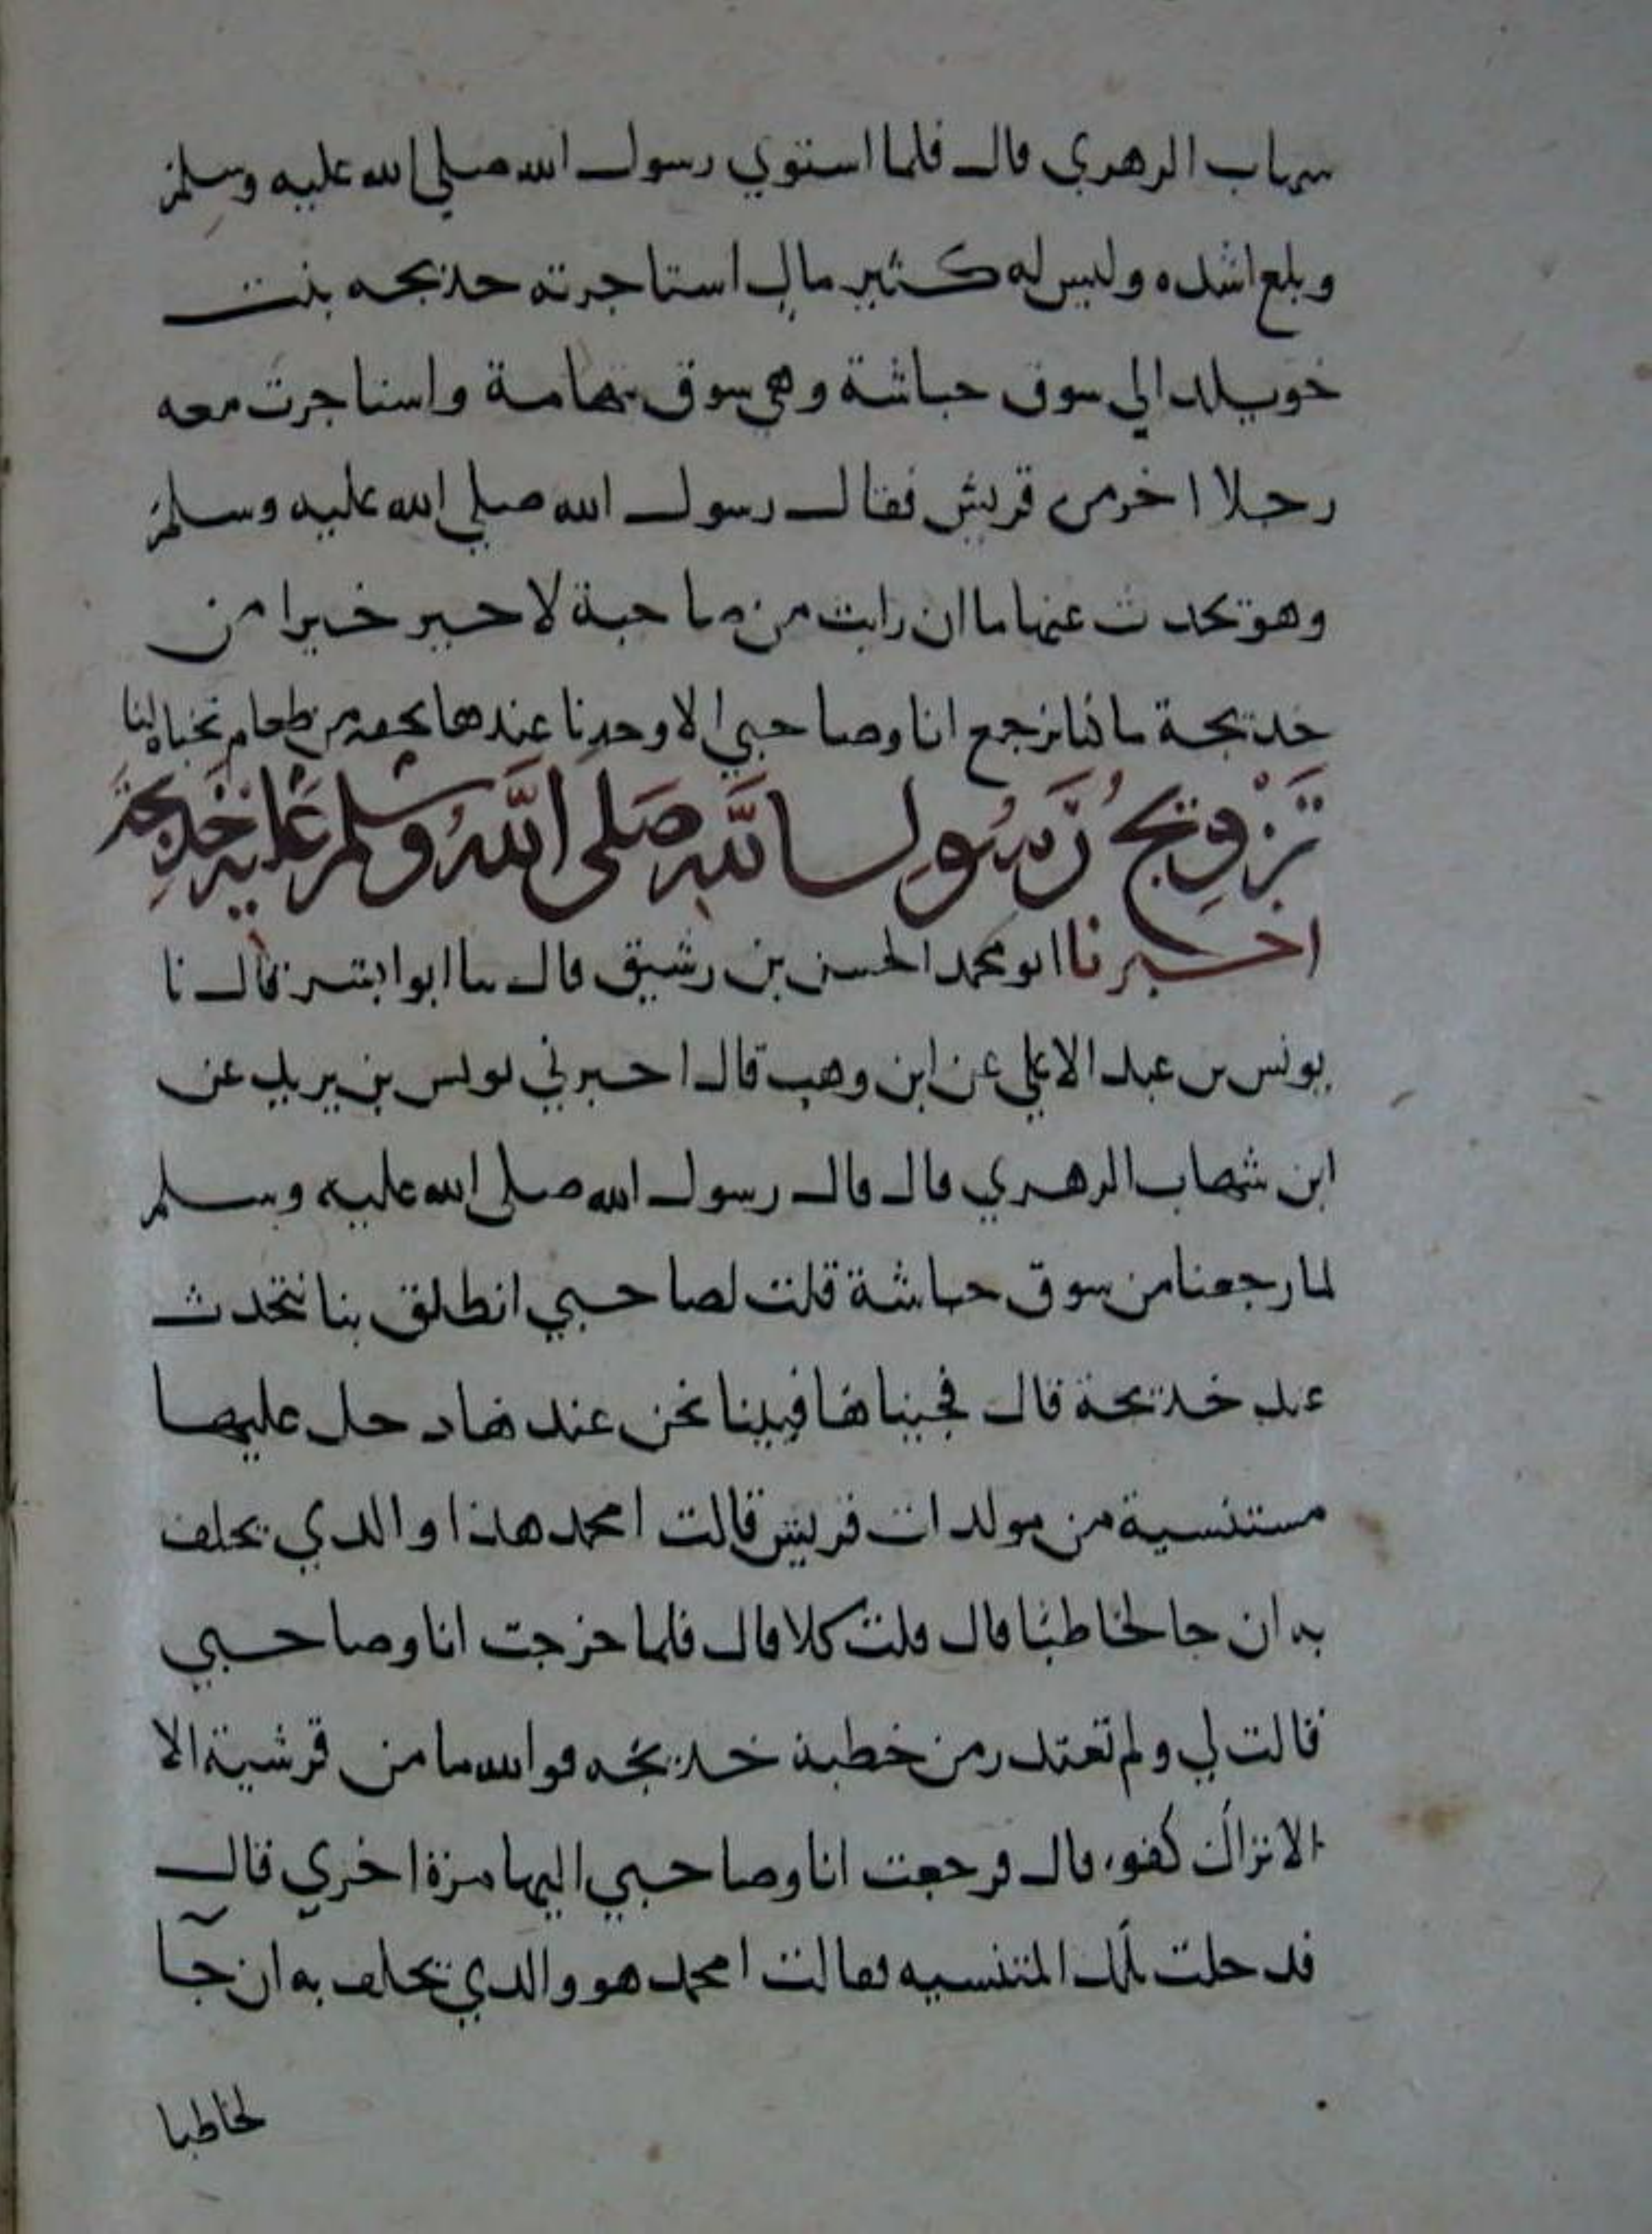 شهاب الزهري قال فلما استوي رسول الله صلي الله عليه وسلم
وبلغ اشده وليس له كثير مال استاجرته خديجه بنت
خويلد الي سوق حباشة وهي سوق بتهامة واستاجرت معه
رجلا اخر من قريش فقال رسول الله صلي الله عليه وسلم
وهو يحدث عنها ما ان رايت من صاحبة لاجير خيرا من
خديجة ما كنا نرجع انا وصاحبي الا وجدنا عندها تحفه من طعام تخباه لنا
تزويج رسول الله صلى الله وسلم عليه خديجة
اخبرنا ابو محمد الحسن بن رشيق قال نا ابو ابشر قال نا
يونس بن عبد الاعلي عن ابن وهب قال اخبرني يونس بن يزيد عن
ابن شهاب الزهري قال قال رسول الله صلي الله عليه وسلم
لما رجعنا من سوق حباشة قلت لصاحبي انطلق بنا نتحدث
عند خديجة قال فجيناها فبينا نحن عندها دخل عليها
مستنسية من مولدات قريش قالت امحمد هذا والذي يحلف
به ان جا لخاطبا قال قلت كلا قال فلما خرجت انا وصاحبي
قالت لي ولم تعتذر من خطبة خديجه فوالله ما من قرشية الا
الا تراك كفو، قال فرجعت انا وصاحبي اليها مرة اخري قال
فدخلت تلك المتنسيه فقالت امحمد هو والذي يحلف به ان جآ
لخاطبا